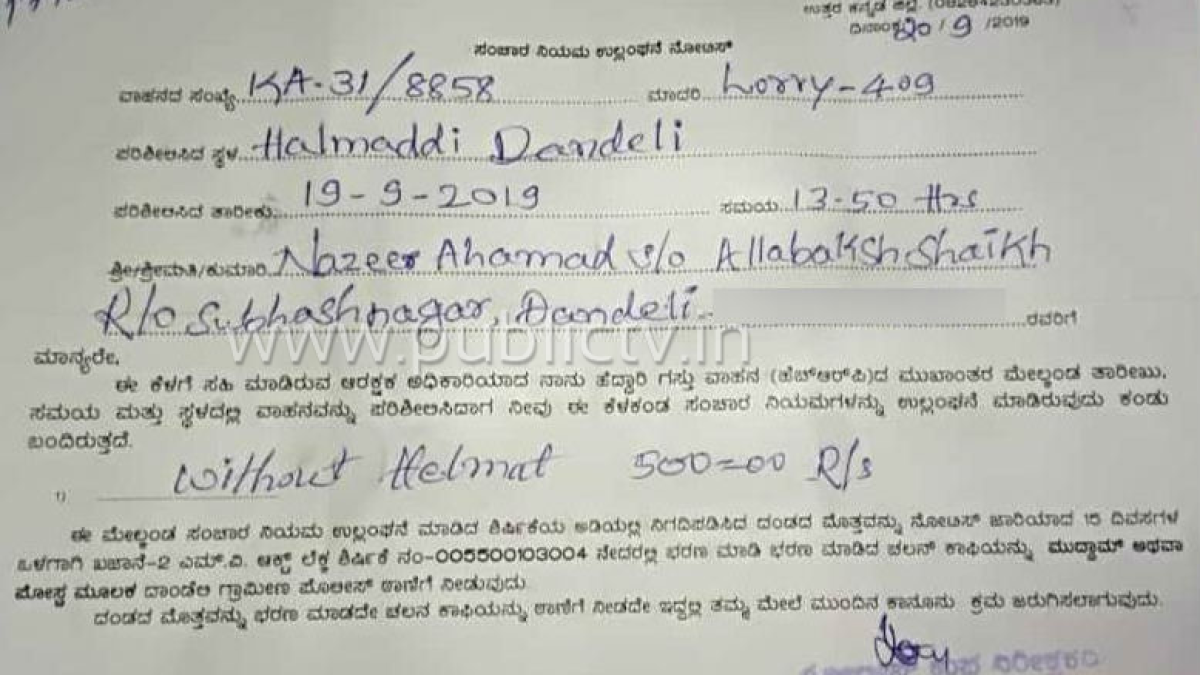 ಉತ್ತರ ಕನ್ನಡ ಜಿಲ್ಲೆ.
ದಿನಾಂಕ 20/9/2019
ಸಂಚಾರ ನಿಯಮ ಉಲ್ಲಂಘನೆ ನೋಟಿಸ್
ವಾಹನದ ಸಂಖ್ಯೆ KA-31/8858 ಮಾದರಿ Lorry-409
ಪರಿಶೀಲಿಸಿದ ಸ್ಥಳ Halmaddi Dandeli
ಪರಿಶೀಲಿಸಿದ ತಾರೀಕು 19-9-2019 ಸಮಯ 13-50 Hrs
ಶ್ರೀ/ಶ್ರೀಮತಿ/ಕುಮಾರಿ Nazeer Ahamad s/o Allabaksh Shaikh
R/o Subhashnagar, Dandeli ರವರಿಗೆ
www.publictv.in
ಮಾನ್ಯರೇ,
ಈ ಕೆಳಗೆ ಸಹಿ ಮಾಡಿರುವ ಆರಕ್ಷಕ ಅಧಿಕಾರಿಯಾದ ನಾನು ಹೆದ್ದಾರಿ ಗಸ್ತು ವಾಹನ (ಹೆಚ್‌ಆರ್‌ಪಿ)ದ ಮುಖಾಂತರ ಮೇಲ್ಕಂಡ ತಾರೀಖು,
ಸಮಯ ಮತ್ತು ಸ್ಥಳದಲ್ಲಿ ವಾಹನವನ್ನು ಪರಿಶೀಲಿಸಿದಾಗ ನೀವು ಈ ಕೆಳಕಂಡ ಸಂಚಾರ ನಿಯಮಗಳನ್ನು ಉಲ್ಲಂಘನೆ ಮಾಡಿರುವುದು ಕಂಡು
ಬಂದಿರುತ್ತದೆ.
1) without Helmat 500=00 R/s
ಈ ಮೇಲ್ಕಂಡ ಸಂಚಾರ ನಿಯಮ ಉಲ್ಲಂಘನೆ ಮಾಡಿದ ಶಿರ್ಷಿಕೆಯ ಅಡಿಯಲ್ಲಿ ನಿಗದಿಪಡಿಸಿದ ದಂಡದ ಮೊತ್ತವನ್ನು ನೋಟಿಸ್ ಜಾರಿಯಾದ 15 ದಿವಸಗಳ
ಒಳಗಾಗಿ ಖಜಾನೆ-2 ಎಮ್.ವಿ. ಆಕ್ಟ್ ಲೆಕ್ಕ ಶಿರ್ಷಿಕೆ ನಂ-005500103004 ನೇದರಲ್ಲಿ ಭರಣ ಮಾಡಿ ಭರಣ ಮಾಡಿದ ಚಲನ್ ಕಾಪಿಯನ್ನು ಮುದ್ದಾಮ್ ಅಥವಾ
ಪೋಸ್ಟ ಮೂಲಕ ದಾಂಡೇಲಿ ಗ್ರಾಮೀಣ ಪೊಲೀಸ್ ಠಾಣೆಗೆ ನೀಡುವುದು.
ದಂಡದ ಮೊತ್ತವನ್ನು ಭರಣ ಮಾಡದೇ ಚಲನ ಕಾಪಿಯನ್ನು ಠಾಣೆಗೆ ನೀಡದೇ ಇದ್ದಲ್ಲಿ ತಮ್ಮ ಮೇಲೆ ಮುಂದಿನ ಕಾನೂನು ಕ್ರಮ ಜರುಗಿಸಲಾಗುವುದು.